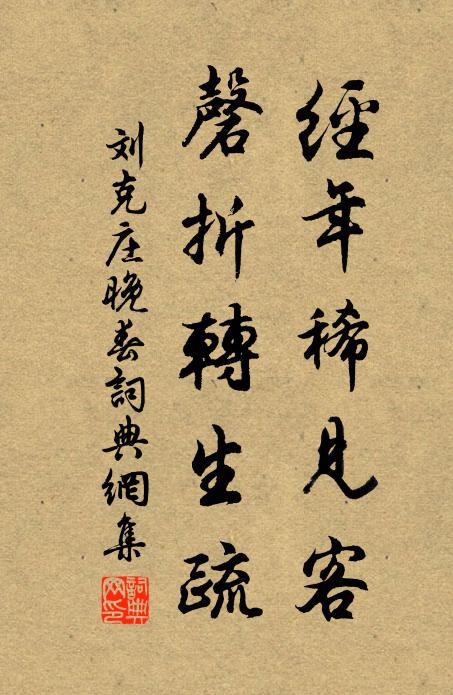 經年稀見客
磬折轉生疏
刘克庄晚春詞典網集
詞典網印